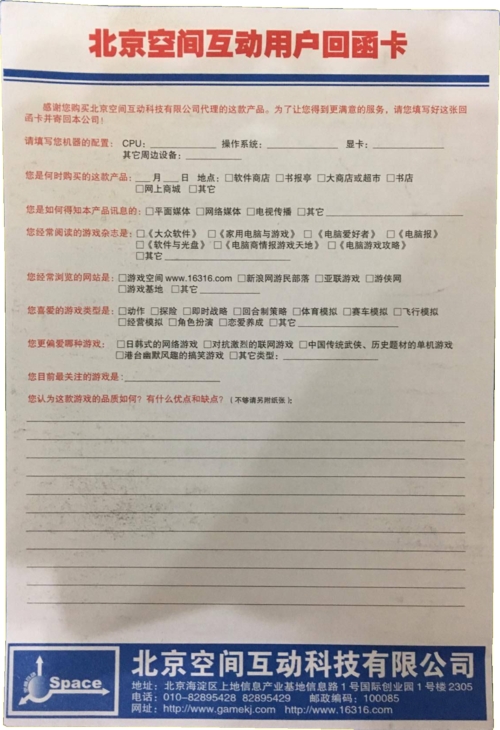 北京空间互动用户回函卡
感谢您购买北京空间互动科技有限公司代理的这款产品。为了让您得到更满意的服务，请您填写好这张回
函卡并寄回本公司！
请填写您机器的配置： CPU：____________ 操作系统：____________ 显卡：____________
其它周边设备：__________
您是何时购买的这款产品：___月___日 地点：□软件商店 □书报亭 □大商店或超市 □书店
□网上商城 □其它
您是如何得知本产品讯息的：□平面媒体 □网络媒体 □电视传播 □其它____________
您经常阅读的游戏杂志是：□《大众软件》 □《家用电脑与游戏》 □《电脑爱好者》 □《电脑报》
□《软件与光盘》 □《电脑商情报游戏天地》 □《电脑游戏攻略》
□其它____________
您经常浏览的网站是：□游戏空间 www.16316.com □新浪网游民部落 □亚联游戏 □游侠网
□游戏基地 □其它____________
您喜爱的游戏类型是：□动作 □探险 □即时战略 □回合制策略 □体育模拟 □赛车模拟 □飞行模拟
□经营模拟 □角色扮演 □恋爱养成 □其它____________
您更偏爱哪种游戏：□日韩式的网络游戏 □对抗激烈的联网游戏 □中国传统武侠、历史题材的单机游戏
□港台幽默风趣的搞笑游戏 □其它类型：____________
您目前最关注的游戏是：____________
您认为这款游戏的品质如何？有什么优点和缺点？（不够请另附纸张）：
Space
北京空间互动科技有限公司
地址：北京海淀区上地信息产业基地信息路1号国际创业园1号楼2305
电话：010-82895428 82895429 邮政编码：100085
网址：http://www.gamekj.com http://www.16316.com